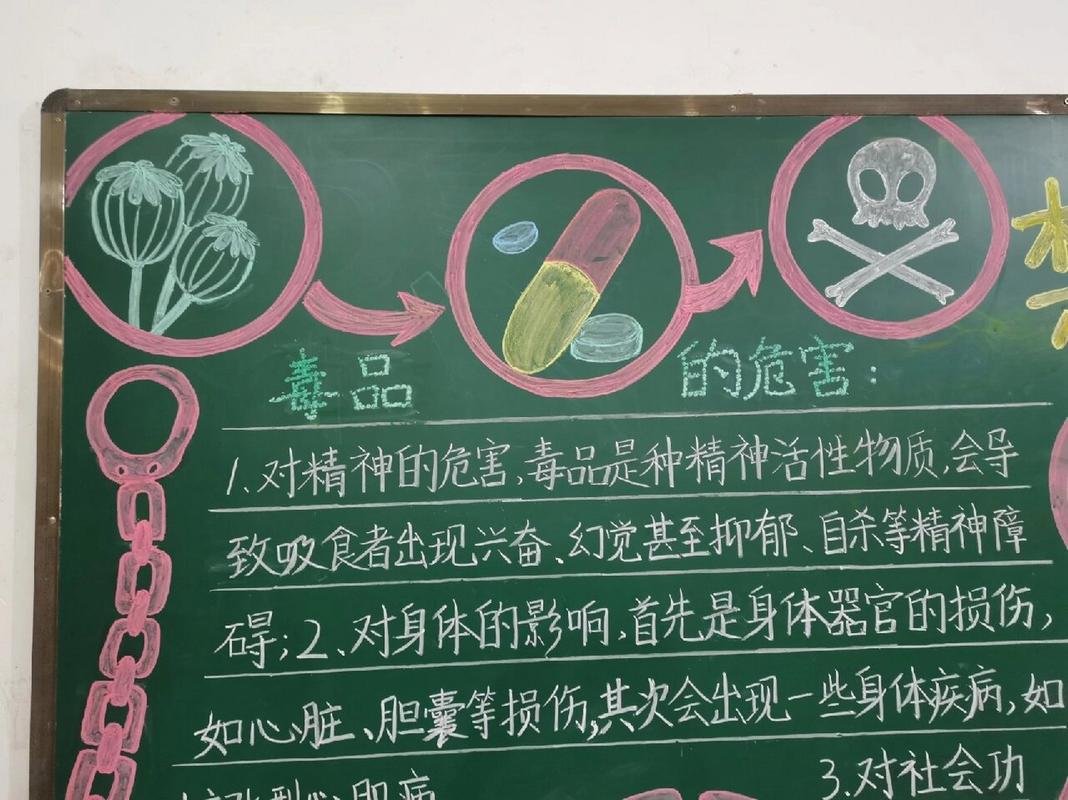 毒品的危害:
1.对精神的危害,毒品是种精神活性物质,会导
致吸食者出现兴奋、幻觉甚至抑郁、自杀等精神障
碍;2、对身体的影响,首先是身体器官的损伤,
如心脏、胆囊等损伤,其次会出现一些身体疾病,如
心肌病
3.对社会功